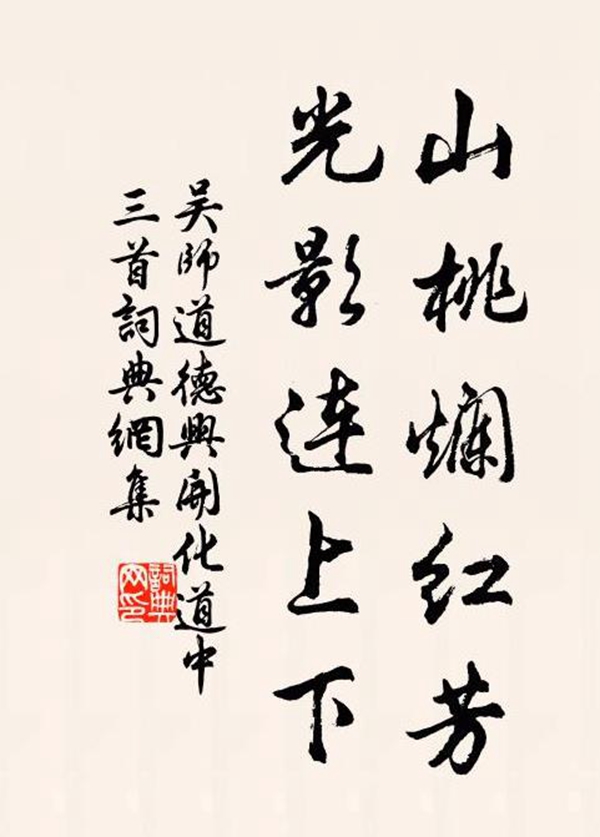 山桃爛红芳
光影連上下
吴師道德興開化道中
三首詞典網集
詞典
网印